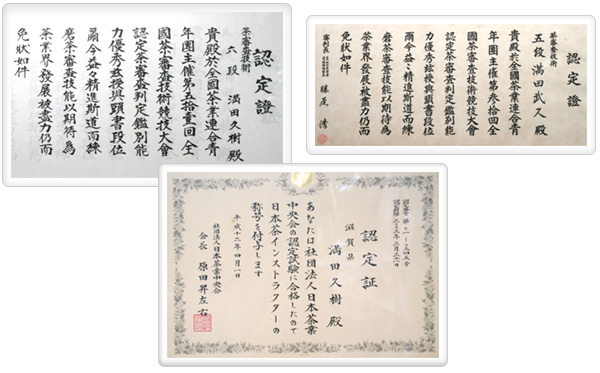 認定證
茶審査技術
六段 満田久樹殿
貴殿於全國茶業連合青
年團主催第五拾壹回全
國茶審査技術競技大會
認定茶審査判定鑑別能
力優秀茲授與頭書段位
爾今益々精進斯道而練
磨茶審査技能以期待為
茶業界發展被盡力仍而
免狀如件
認定證
茶審査技術
五段 満田武久殿
貴殿於全國茶業連合青
年團主催第参拾四回全
國茶審査技術競技大會
認定茶審査判定鑑別能
力優秀茲授與頭書段位
爾今益々精進斯道而練
磨茶審査技能以期待為
茶業界發展被盡力仍而
免狀如件
審判長
勝尾 清
認定証
滋賀県
満田久樹殿
あなたは社団法人日本茶業
中央会の認定試験に合格したので
日本茶インストラクターの
称号を付与します
平成十三年四月一日
社団法人日本茶業中央会
会長 原田昇左右